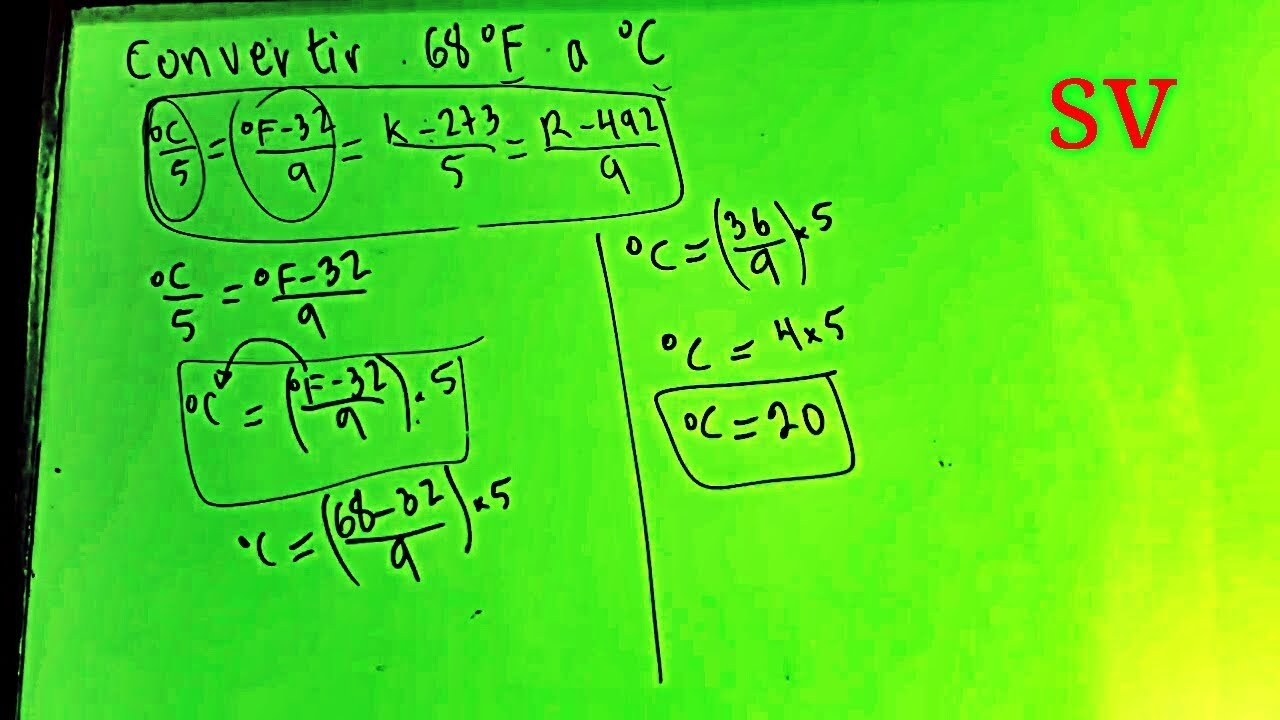 Convertir . 68°F . a °C
SV
°C/5 = °F-32/9 = K-273/5 = R-492/9
°C/5 = °F-32/9
°C = (°F-32/9) . 5
°C = (68-32/9) × 5
°C = (36/9) × 5
°C = 4×5
°C = 20